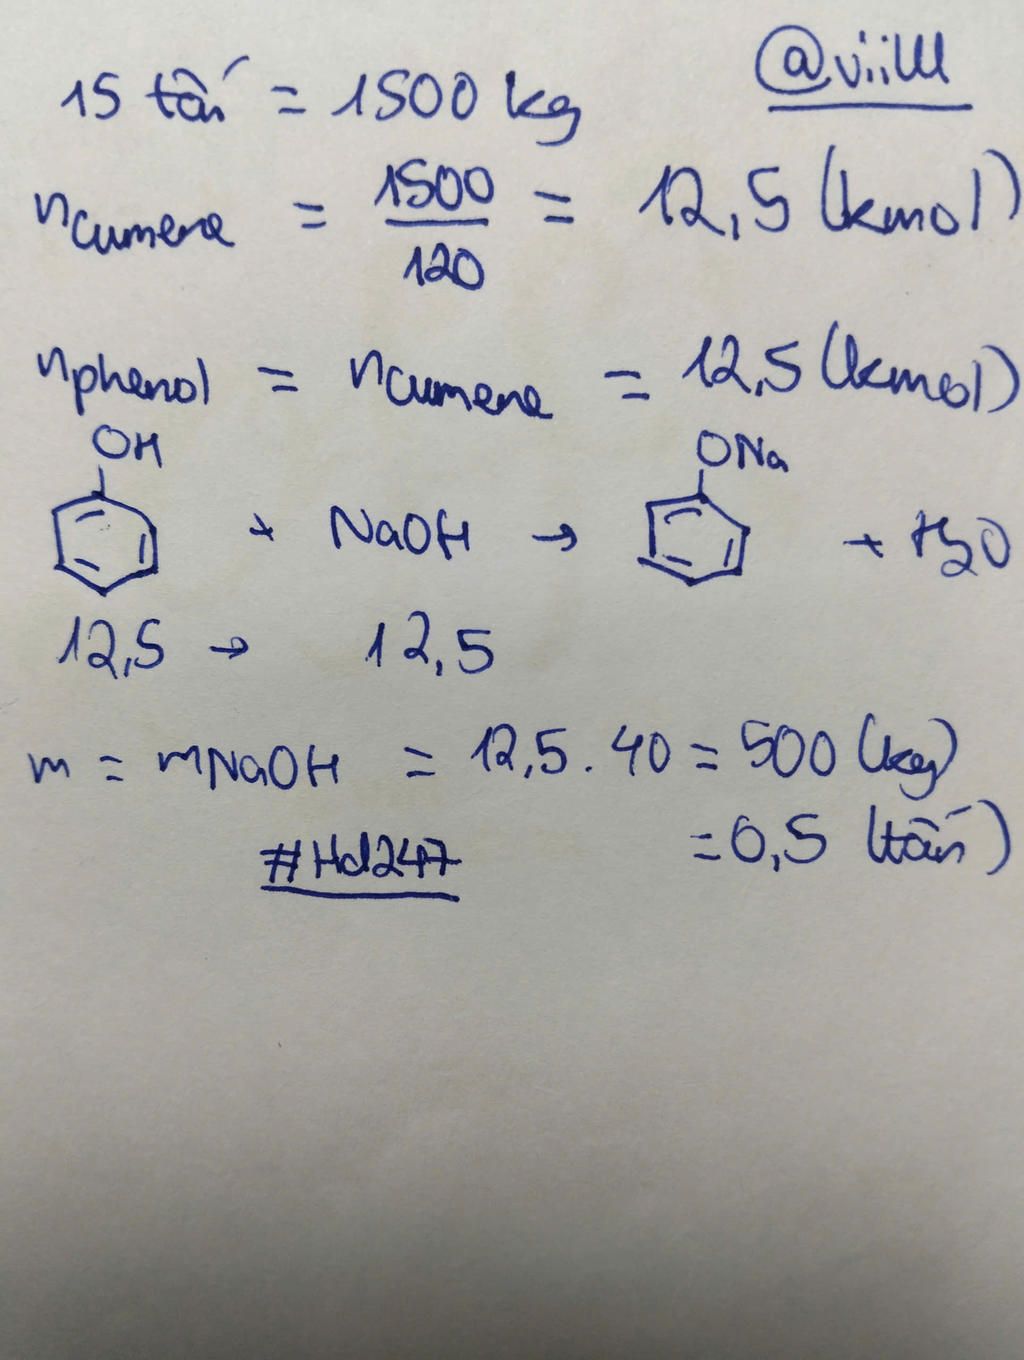 @viilll
15 tấn = 1500 kg
n cumene = 1500/120 = 12,5 (kmol)
n phenol = n cumene = 12,5 (kmol)
OH + NaOH → ONa + H2O
12,5 → 12,5
m = mNaOH = 12,5 . 40 = 500 (kg)
= 0,5 (tấn)
#Hd247